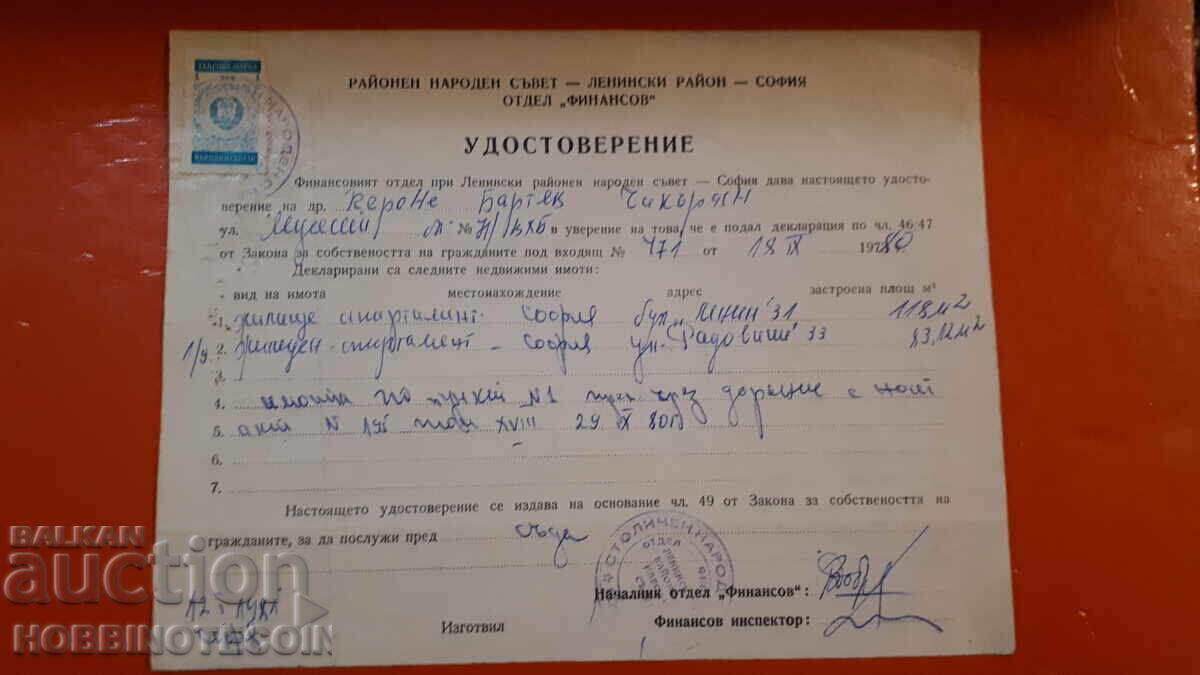 ТАКСОВА МАРКА
1 ЛЕВ 1
НАРОДНИ СЪВЕТИ
НАРОДЕН С
РАЙОНЕН НАРОДЕН СЪВЕТ — ЛЕНИНСКИ РАЙОН — СОФИЯ
ОТДЕЛ „ФИНАНСОВ“
УДОСТОВЕРЕНИЕ
Финансовият отдел при Ленински районен народен съвет — София дава настоящето удосто-
верение на др. Бартев
ул. № в уверение на това, че е подал декларация по чл. 46/47
от Закона за собствеността на гражданите под входящ № 771 от 18 IX 197 80
Декларирани са следните недвижими имоти:
вид на имота местонахождение адрес застроена площ м²
1. жилище апартамент София бул. „Ленин“ 31 118 м2
2. апартамент – София ул. „Радовиш“ 33 83,12 м2
3.
4. по пункт №1 чрез дарение с нот
5. акт № 195 том XVIII 29 IX 80
6.
7.
Настоящето удостоверение се издава на основание чл. 49 от Закона за собствеността на
гражданите, за да послужи пред съда
СТОЛИЧЕН НАРОД
ОТДЕЛ
ЛЕНИНСК
РАЙОН
НАРОД
СЪВ
Началник отдел „Финансов“:
Изготвил Финансов инспектор:
BALKAN
auction
HOBBINOTESCOIN